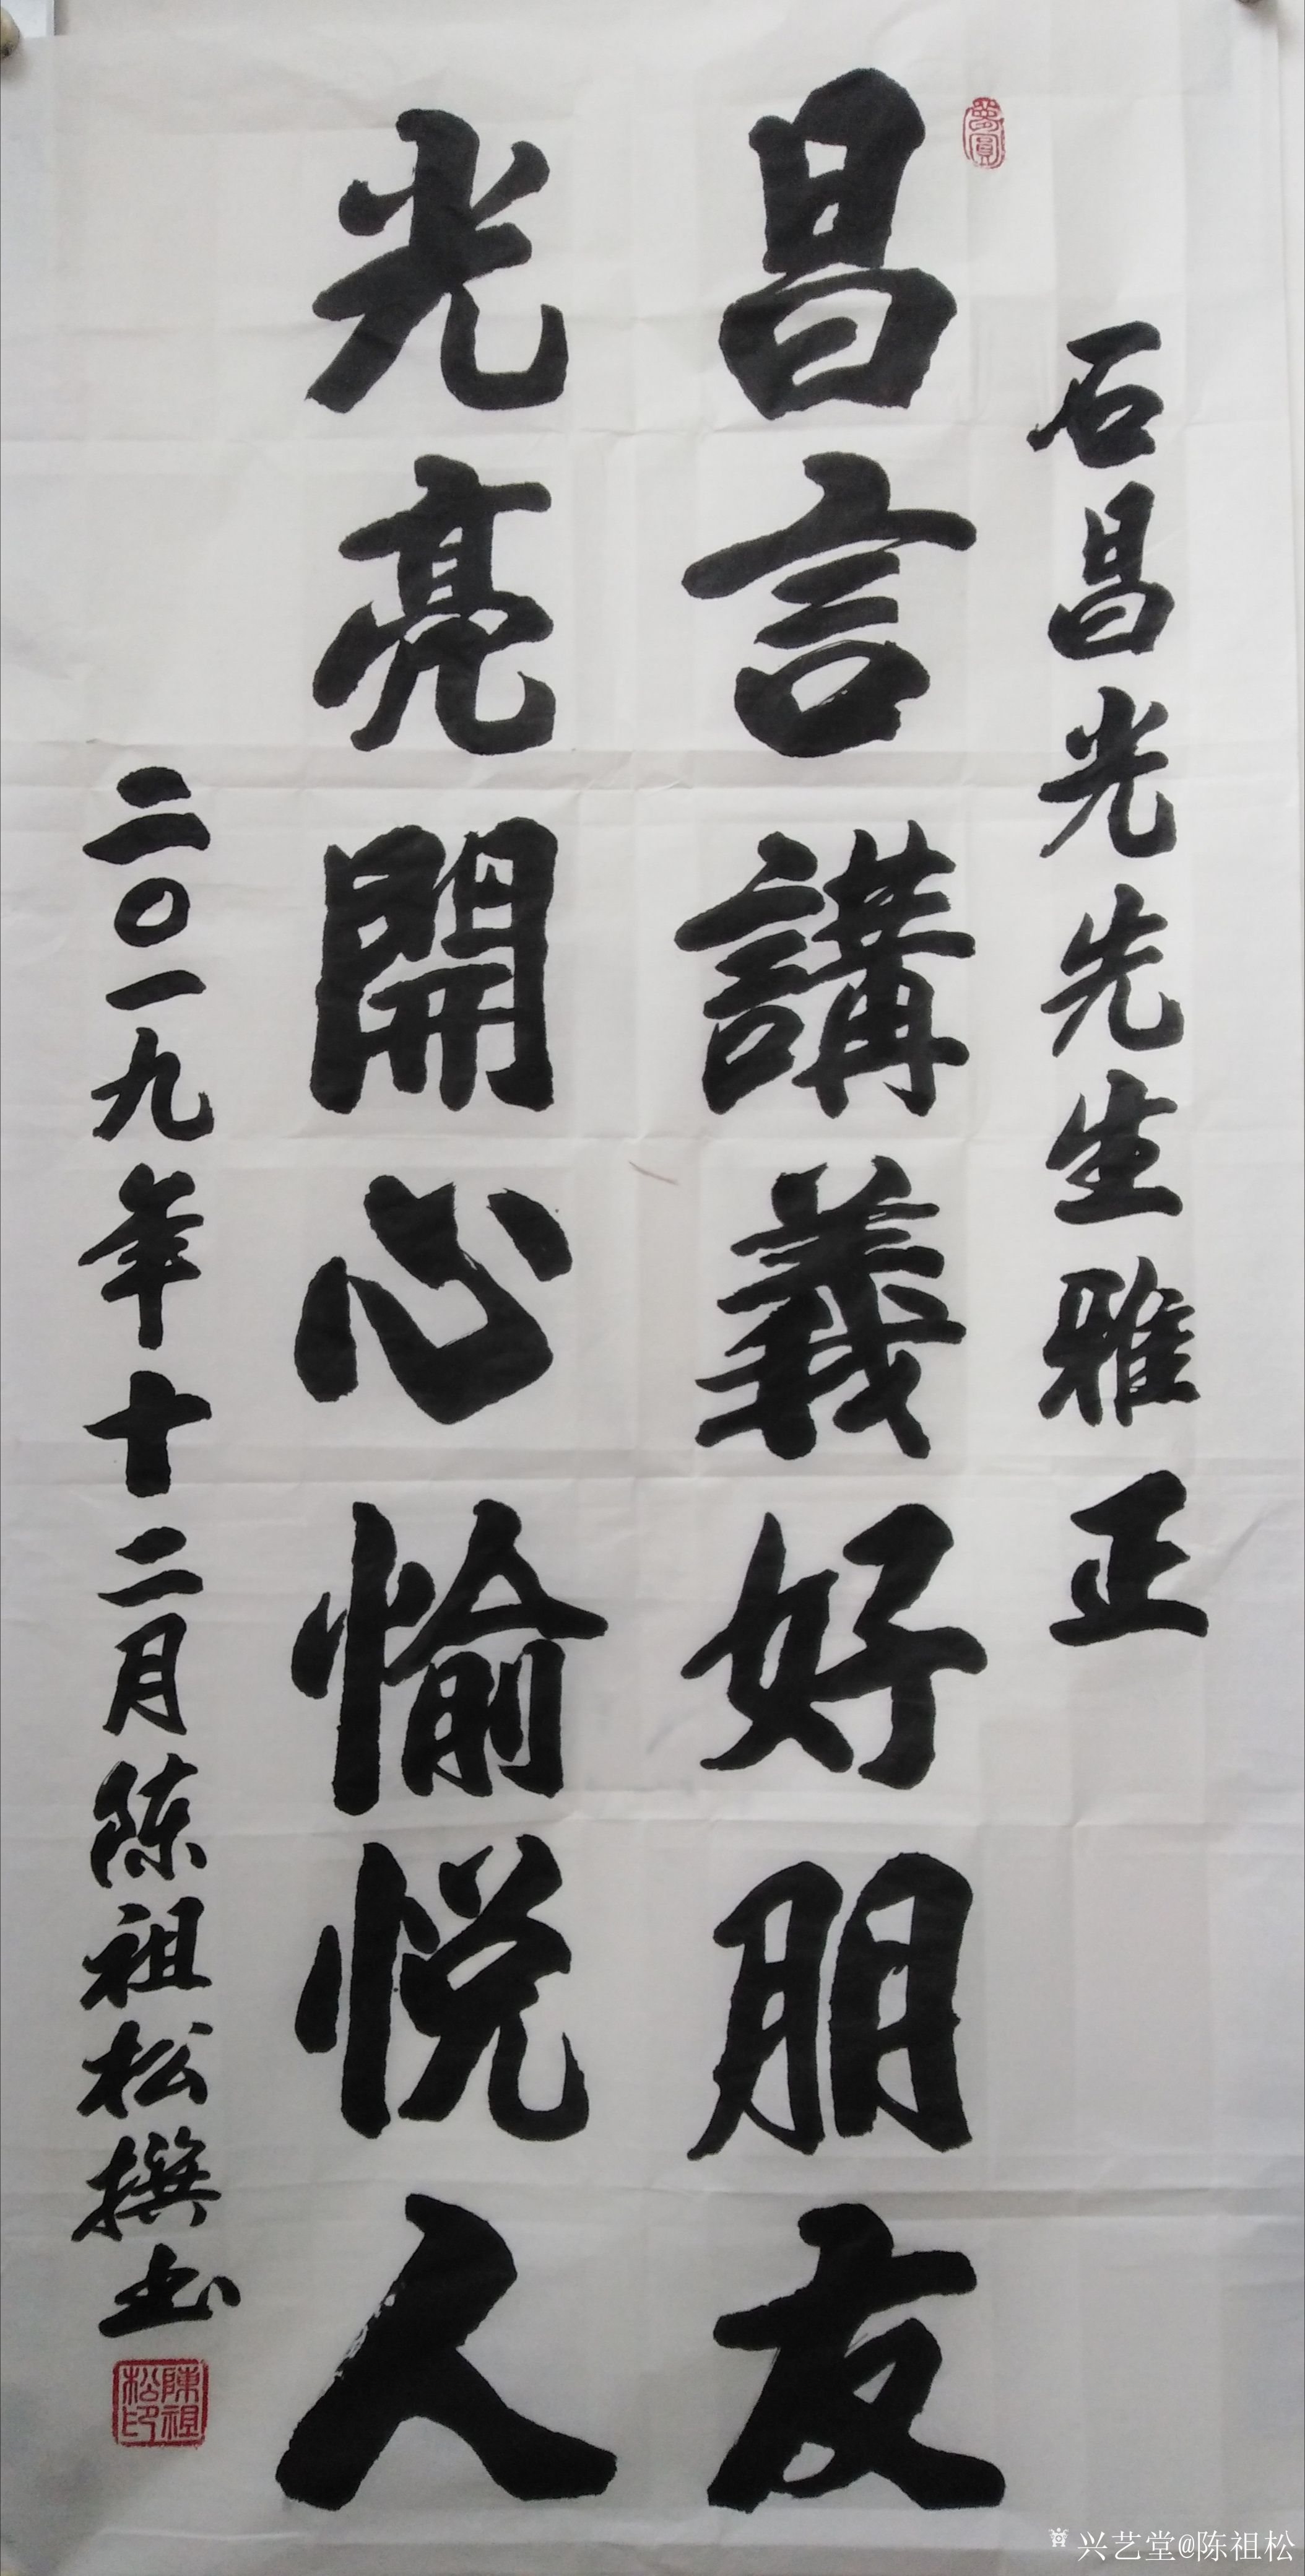 石昌光先生雅正
昌言講義好朋友
光亮開心愉悦人
二〇一九年十二月陈祖松撰书
陳祖松印
兴艺堂@陈祖松